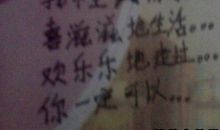 喜滋滋地生活...
欢乐乐地走过...
你一定可以...